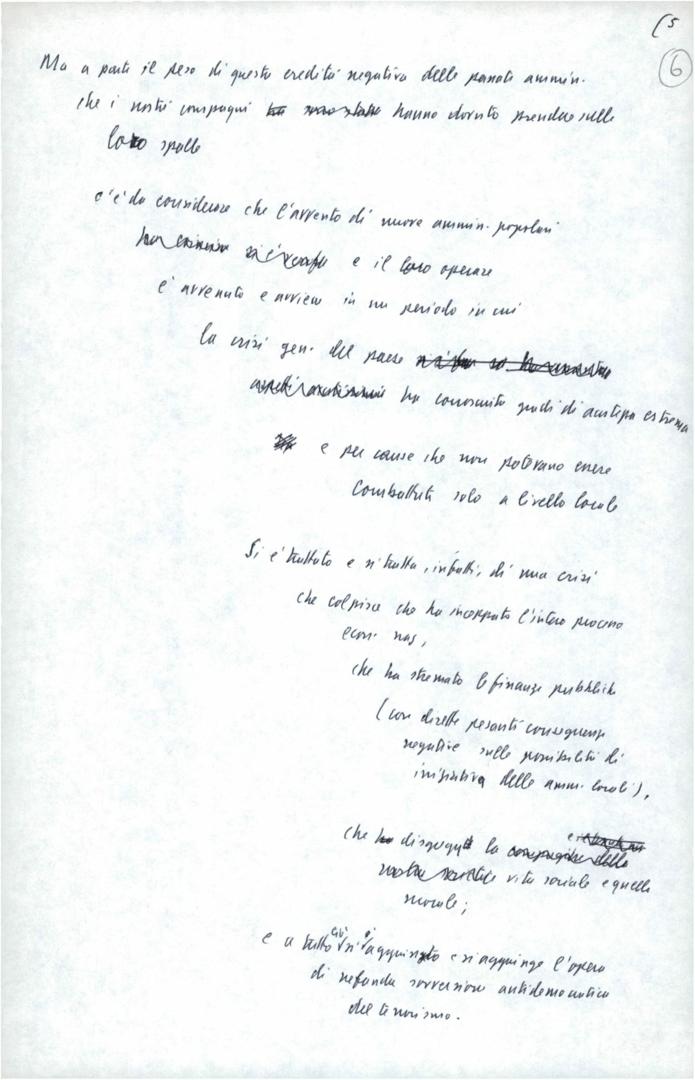 (5
6
Ma a parte il peso di questa eredità negativa delle passate ammin.
che i nostri compagni hanno dovuto prendere sulle
loro spalle
c'è da considerare che l'avvento di nuove ammin. popolari
e il loro operare
è avvenuto e avviene in un periodo in cui
la crisi gen. del paese
ha conosciuto gradi di acutezza estrema
e per cause che non potevano essere
combattute solo a livello locale
Si è trattato e si tratta, infatti, di una crisi
che colpisce che ha inceppato l'intero processo
econ. naz,
che ha stremato le finanze pubbliche
(con dirette pesanti conseguenze
negative sulle possibilità di
iniziativa delle amm. locali),
che disgrega la
vita sociale e quella
morale;
e a tutto ciò si è aggiunto e si aggiunge l'opera
di nefanda sovversione antidemocratica
del terrorismo.